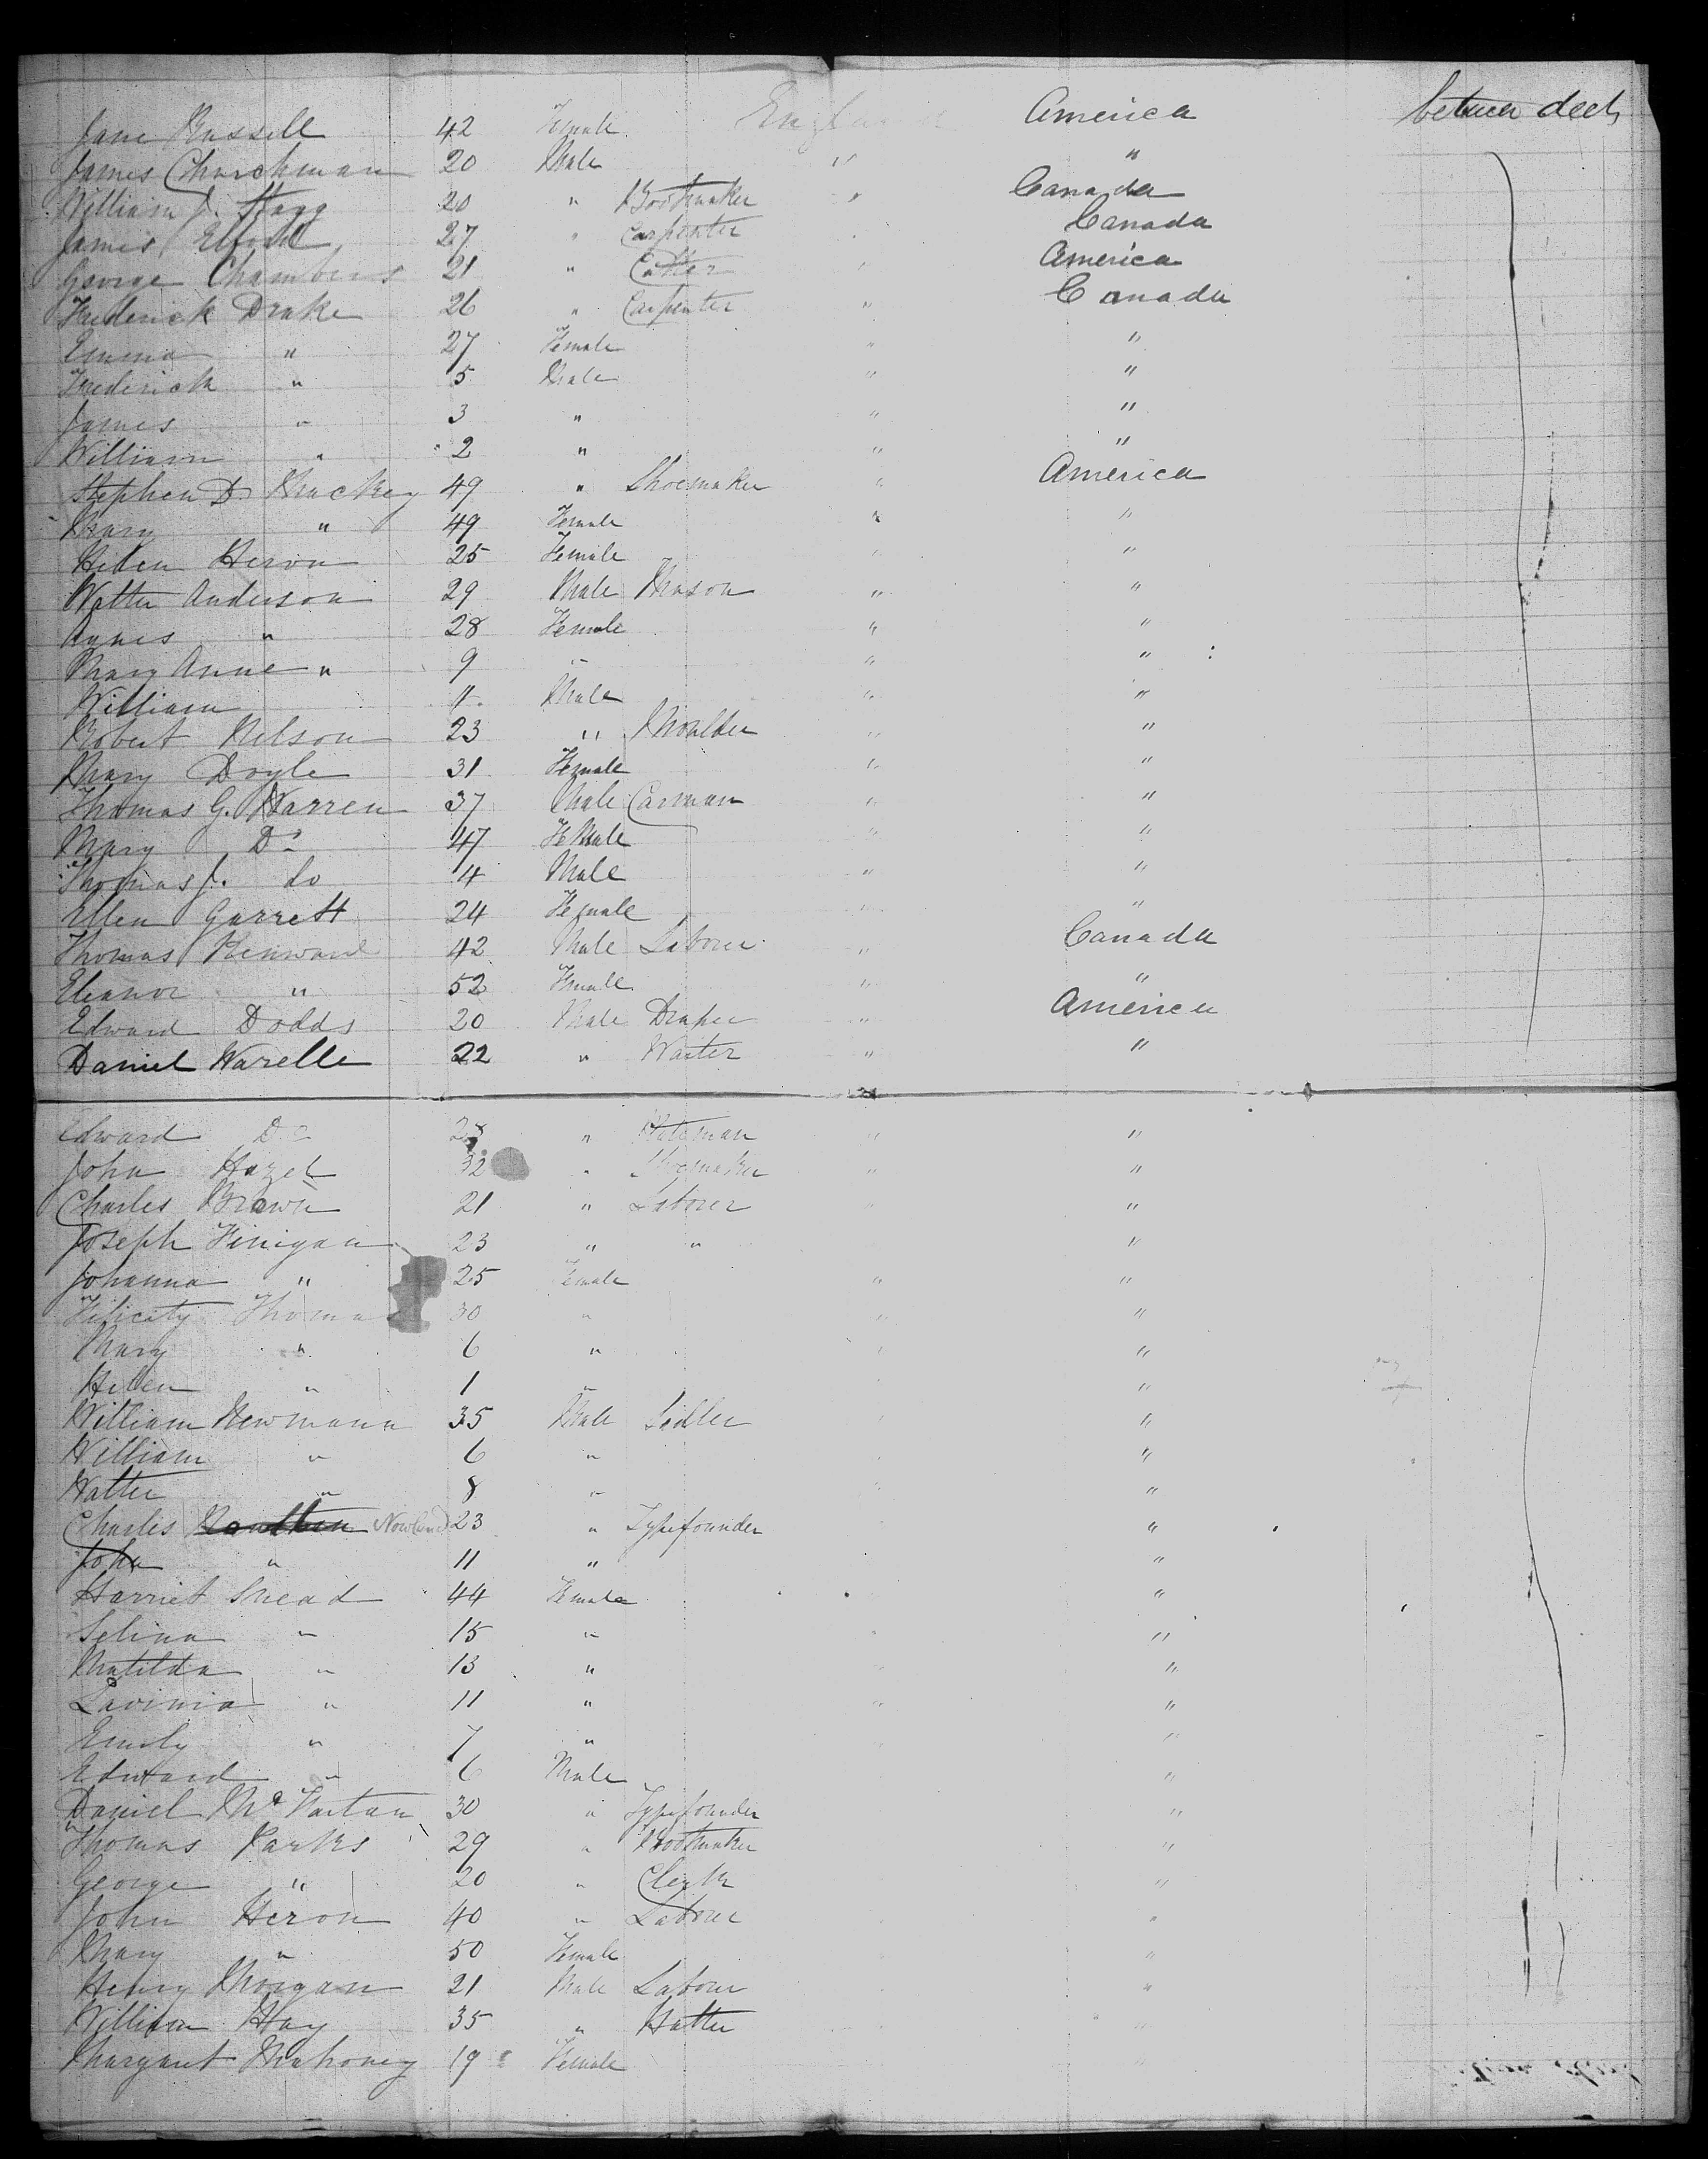 Jane Russell 42 Female England America between deck
James Churchman 20 Male " "
William J. Stagg 20 " Bootmaker " Canada
James Elford 27 " Carpenter " Canada
George Chambers 21 " Cutter " America
Frederick Drake 26 " Carpenter " Canada
Emma " 27 Female " "
Frederick " 5 Male " "
James " 3 " " "
William " 2 " " "
Stephen D. Mackey 49 " Shoemaker " America
Mary " 49 Female " "
Helen Heron 25 Female " "
Walter Anderson 29 Male Mason " "
Agnes " 28 Female " "
Mary Anne " 9 " " "
William 11 Male " "
Robert Nelson 23 " Moulder " "
Mary Doyle 31 Female " "
Thomas G. Warren 37 Male Carman " "
Mary Do 47 Female " "
Thomas J. do 4 Male " "
Ellen Garrett 24 Female " "
Thomas Kenward 42 Male Laborer " Canada
Eleanor " 52 Female " "
Edward Dodds 20 Male Draper " America
Daniel Warelle 22 " Waiter " "
Edward Do 28 " "
John Hazel 32 " Shoemaker " "
Charles Brown 21 " Laborer " "
Joseph Finigan 23 " " "
Johanna " 25 Female " "
Felicity Thomas 30 " " "
Mary " 6 " "
Helen " 1 " "
William Newmann 35 Male Sadler "
William " 6 " "
Walter " 8 " "
Charles Nowland 23 " Typefounder "
John " 11 " "
Harriet Snead 44 Female "
Selina " 15 " "
Matilda " 13 " "
Lavinia " 11 " " "
Emily " 7 " "
Edward " 6 Male "
Daniel McKartan 30 " Typefounder "
Thomas Parks 29 " Bootmaker "
George " 20 " Clerk "
John Heron 40 " Laborer "
Mary " 50 Female "
Henry Morgan 21 Male Laborer "
William Hay 35 " Hatter "
Margaret Mahoney 19 Female "